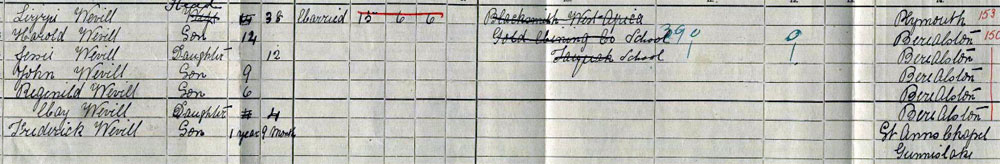 Head
Lizzie Wevill 38 Married 15 6 6 Blacksmith West Africa Plymouth 153
Harold Wevill Son 12 Gold Mining Co School 390 9 Bere Alston 150
Jessie Wevill Daughter 12 School Bere Alston
John Wevill Son 9 Bere Alston
Reginild Wevill Son 6 Bere Alston
May Wevill Daughter 4 Bere Alston
Frederick Wevill Son 1 year 9 Month St Anns Chapel
Gunnislake